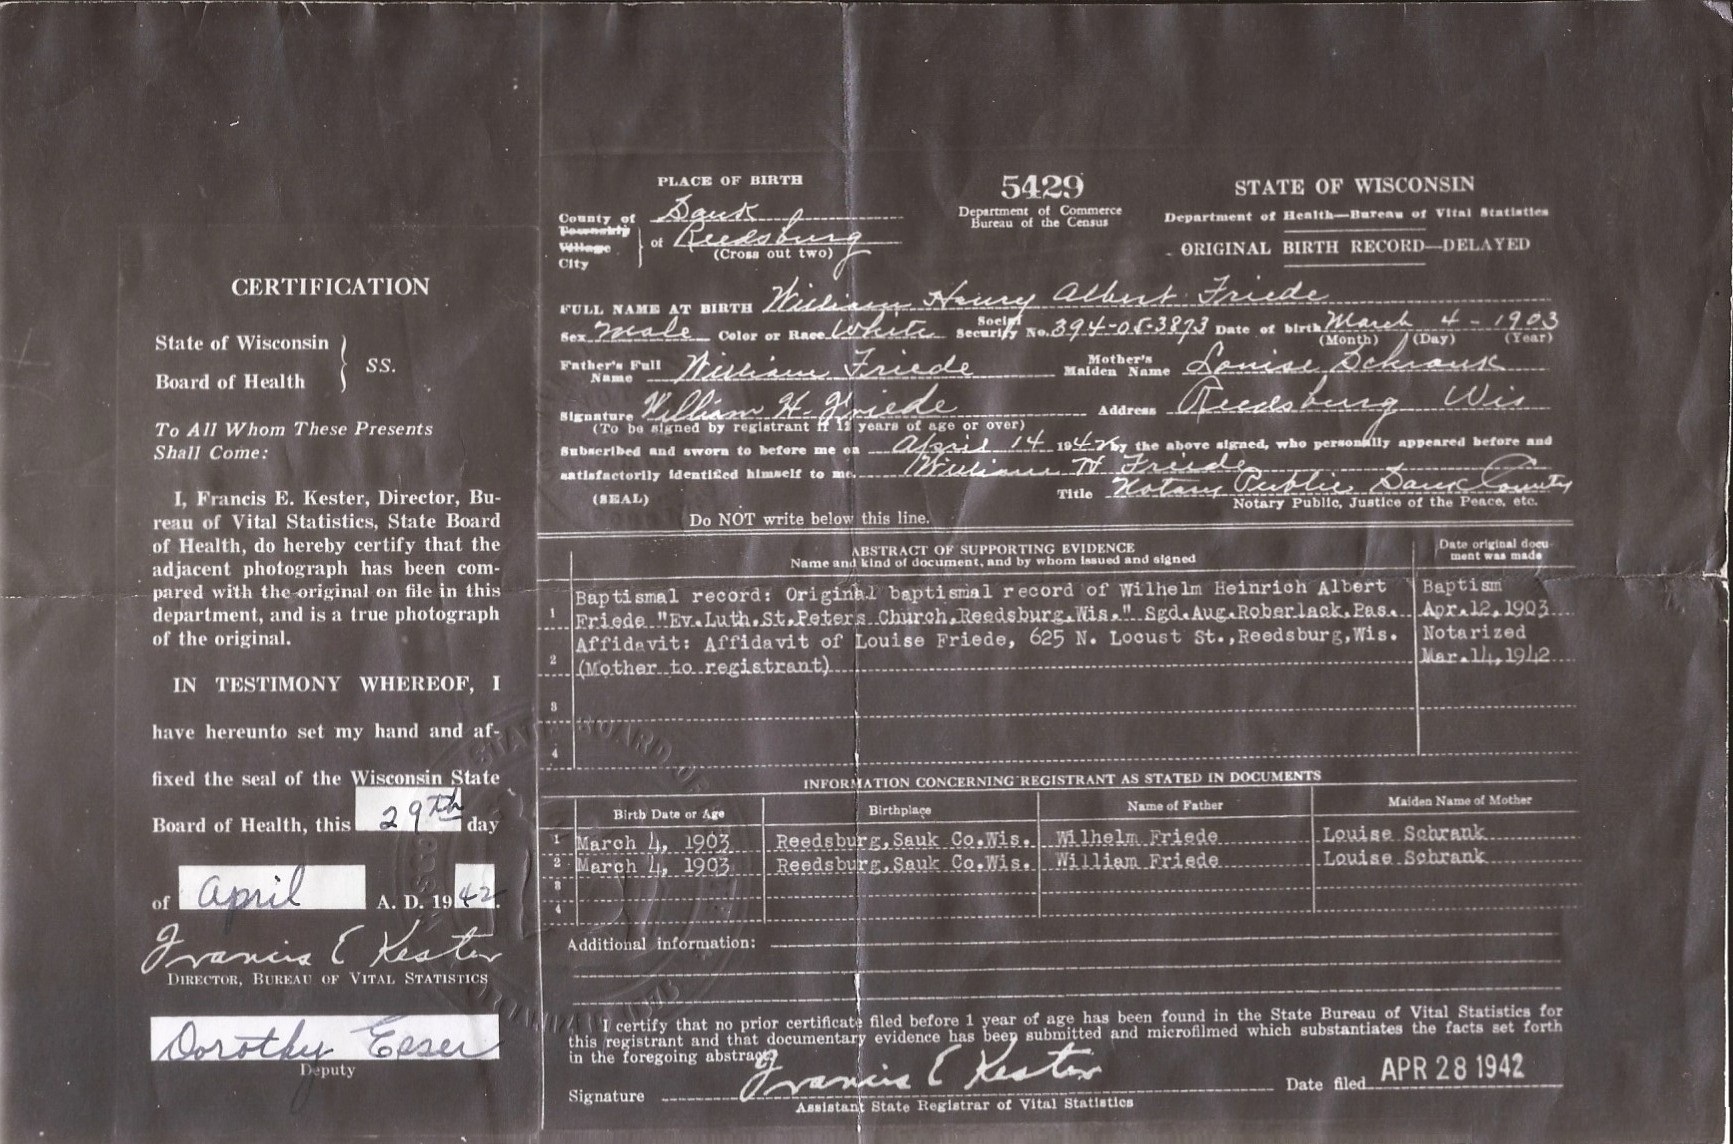 CERTIFICATION
State of Wisconsin
Board of Health
SS.
To All Whom These Presents
Shall Come:
I, Francis E. Kester, Director, Bu-
reau of Vital Statistics, State Board
of Health, do hereby certify that the
adjacent photograph has been com-
pared with the original on file in this
department, and is a true photograph
of the original.
IN TESTIMONY WHEREOF, I
have hereunto set my hand and af-
fixed the seal of the Wisconsin State
Board of Health, this 29th day
of April A. D. 1942.
Francis E Kester
DIRECTOR, BUREAU OF VITAL STATISTICS
Dorothy Esser
Deputy
PLACE OF BIRTH
County of Sauk
Township
Village
City
of Reedsburg
(Cross out two)
5429
Department of Commerce
Bureau of the Census
STATE OF WISCONSIN
Department of Health—Bureau of Vital Statistics
ORIGINAL BIRTH RECORD—DELAYED
FULL NAME AT BIRTH William Henry Albert Friede
Sex Male Color or Race White Social Security No. 394-05-3873 Date of birth March 4 - 1903
(Month) (Day) (Year)
Father's Full Name William Friede Mother's Maiden Name Louise Schrank
Signature William H. Friede Address Reedsburg Wis
(To be signed by registrant if 12 years of age or over)
Subscribed and sworn to before me on April 14 1942 by the above signed, who personally appeared before and
satisfactorily identified himself to me. William H Friede
(SEAL) Title Notary Public Sauk County
Notary Public, Justice of the Peace, etc.
Do NOT write below this line.
ABSTRACT OF SUPPORTING EVIDENCE
Name and kind of document, and by whom issued and signed
Date original docu-
ment was made
1 Baptismal record: Original baptismal record of Wilhelm Heinrich Albert Baptism
Friede "Ev.Luth.St.Peters Church,Reedsburg,Wis." Sgd.Aug.Roberlack,Pas. Apr.12,1903
2 Affidavit: Affidavit of Louise Friede, 625 N. Locust St.,Reedsburg,Wis. Notarized
(Mother to registrant) Mar.14,1942
3
4
INFORMATION CONCERNING REGISTRANT AS STATED IN DOCUMENTS
Birth Date or Age Birthplace Name of Father Maiden Name of Mother
1 March 4, 1903 Reedsburg,Sauk Co.Wis. Wilhelm Friede Louise Schrank
2 March 4, 1903 Reedsburg,Sauk Co.Wis. William Friede Louise Schrank
3
4
Additional information:
I certify that no prior certificate filed before 1 year of age has been found in the State Bureau of Vital Statistics for
this registrant and that documentary evidence has been submitted and microfilmed which substantiates the facts set forth
in the foregoing abstract.
Signature Francis E Kester Date filed APR 28 1942
Assistant State Registrar of Vital Statistics